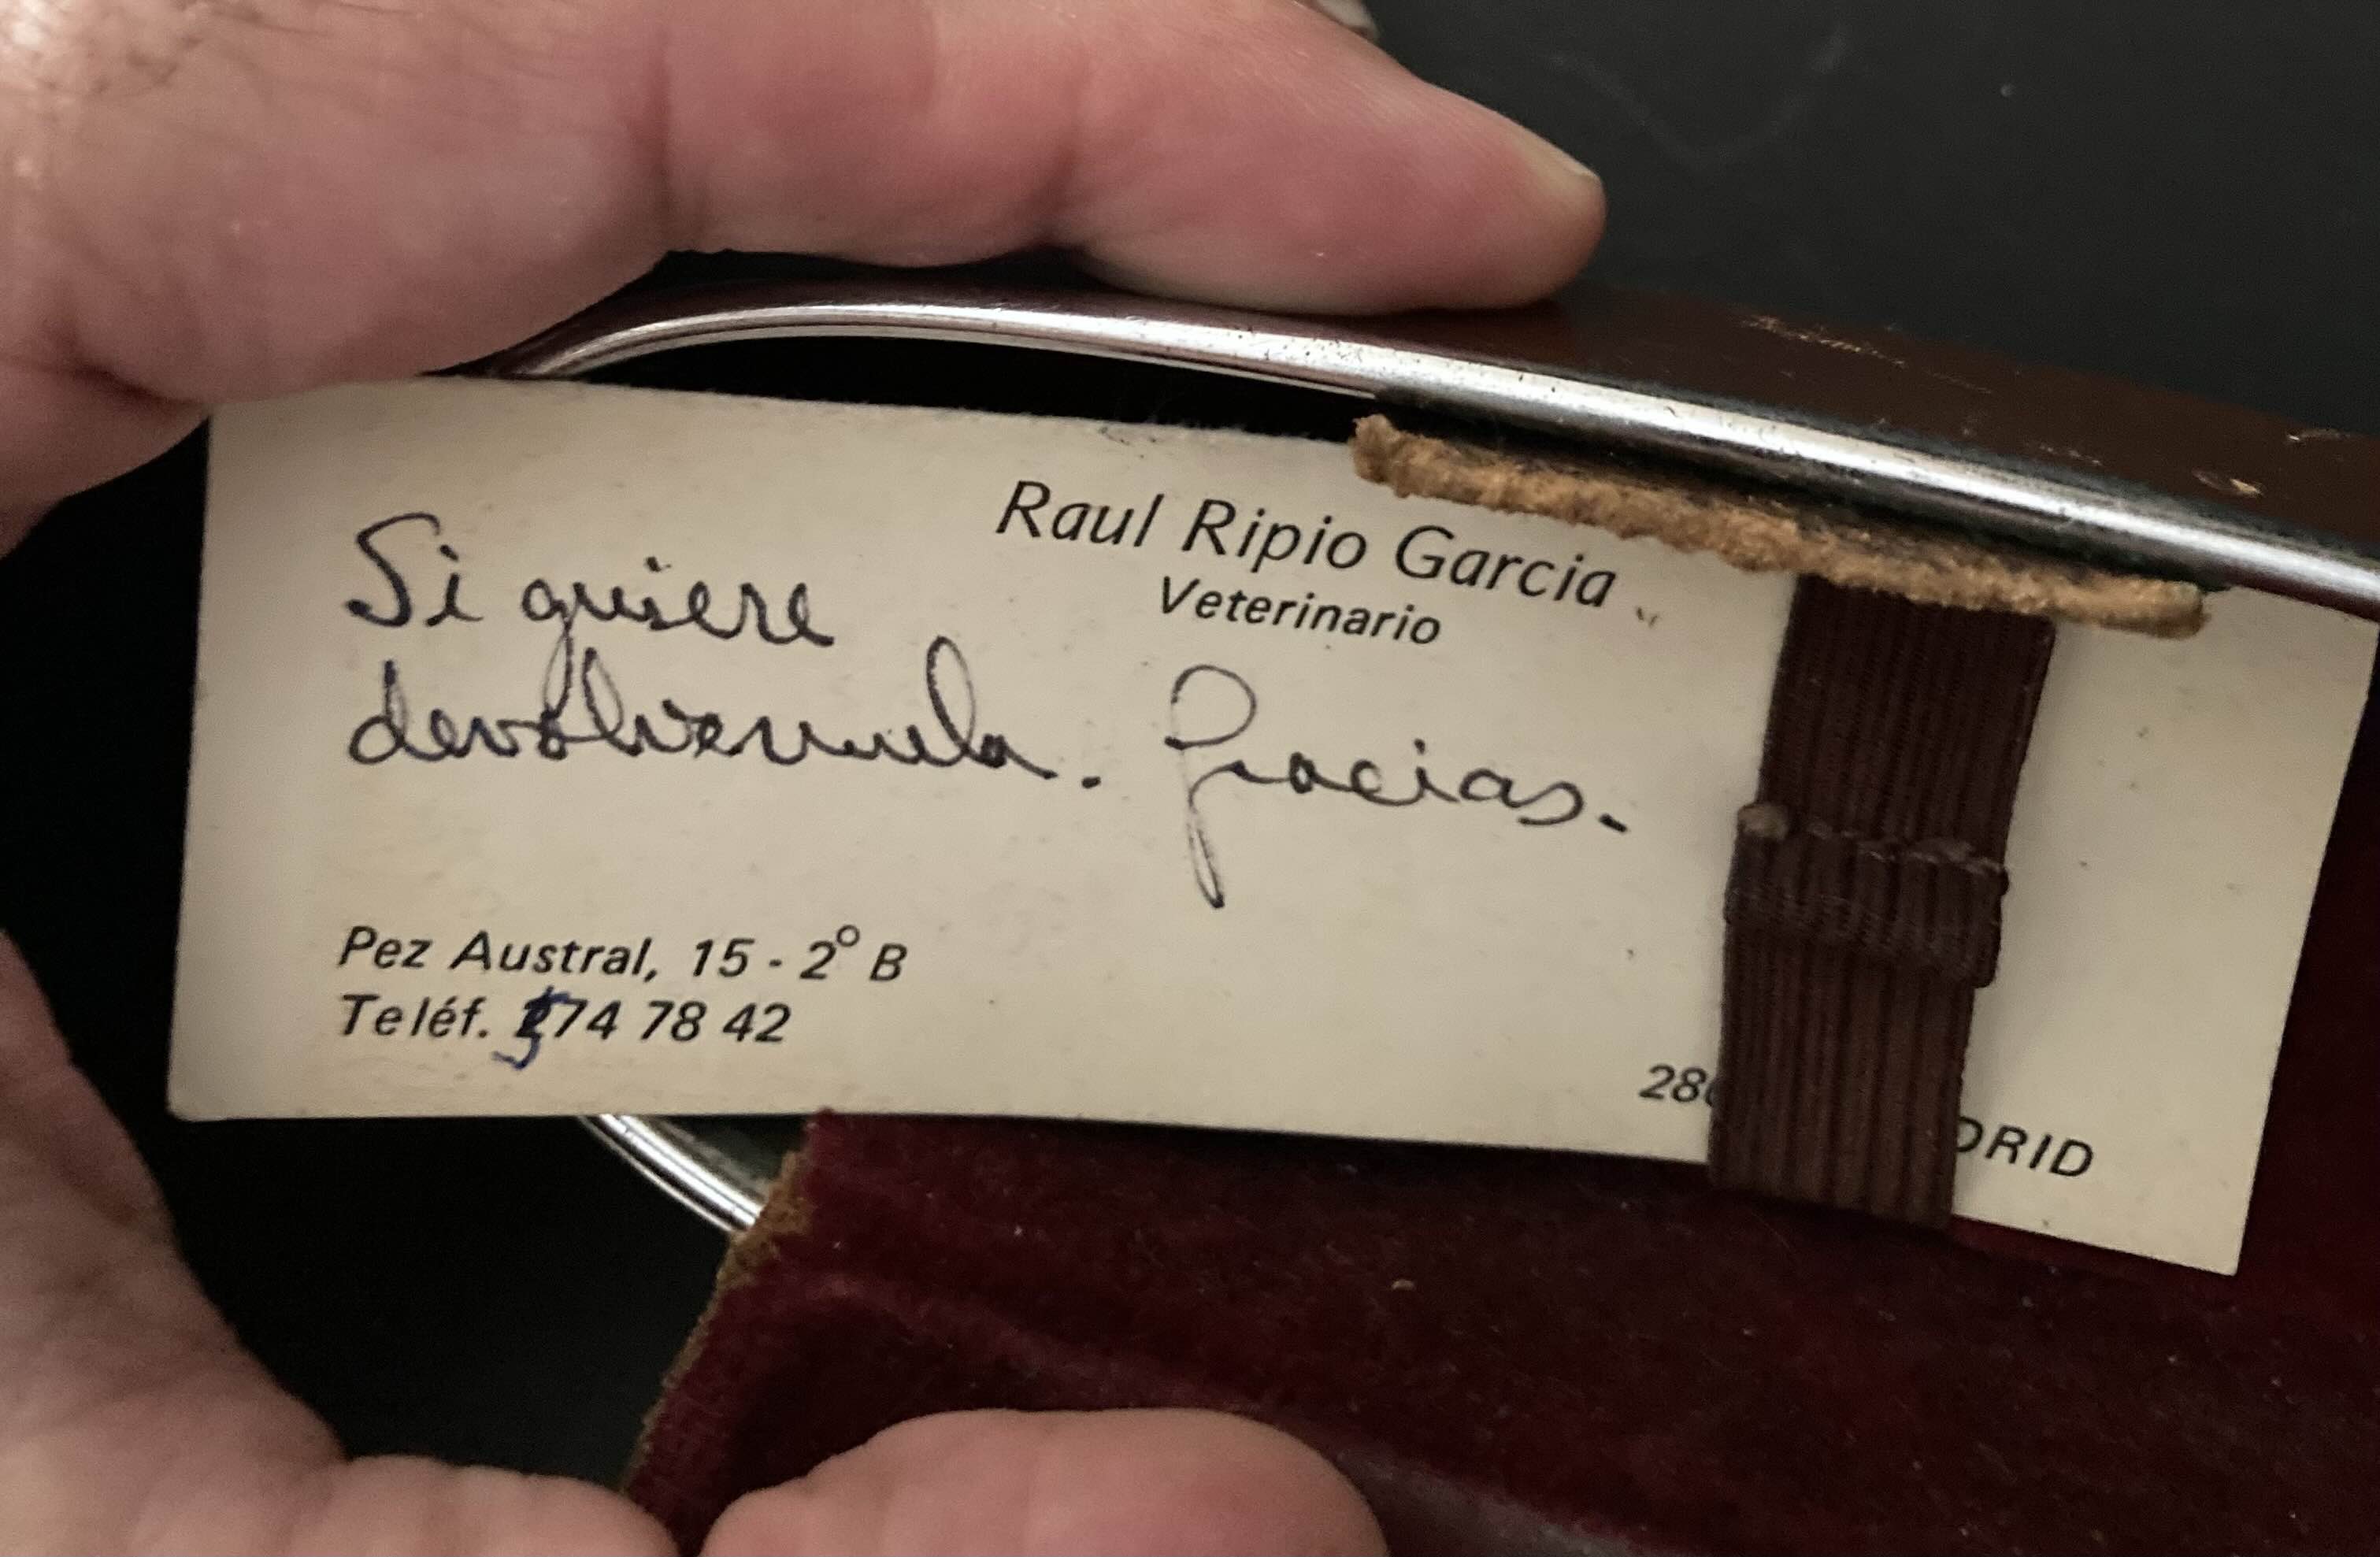 Raul Ripio Garcia
Veterinario
Si quiere
devolvermela. Gracias.
Pez Austral, 15 - 2º B
Teléf. 574 78 42
28
DRID